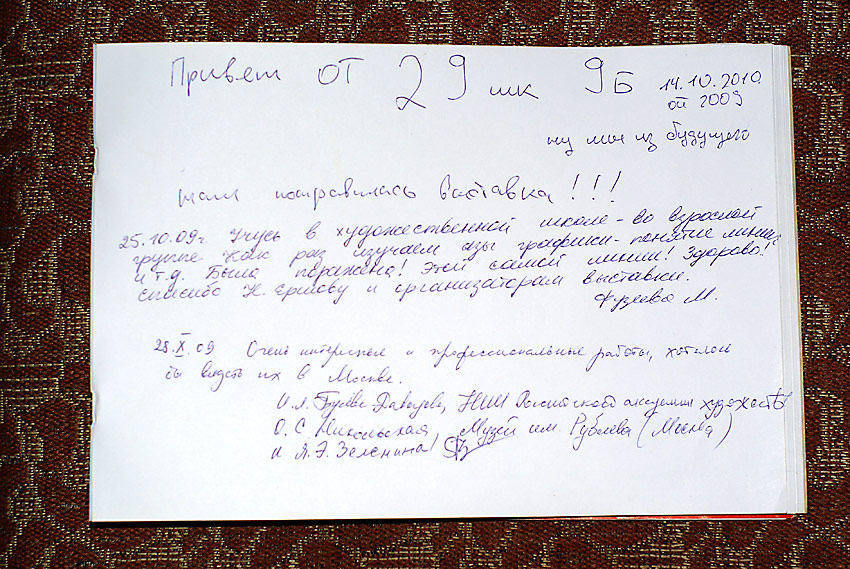 Привет от 29 шк 9Б 14.10.2010
от 2009
ну мы из будущего
нам понравилась выставка!!!
25.10.09г. Учусь в художественной школе - во взрослой
группе. Как раз изучаем азы графики - понятие линии
и т.д. Была поражена! Этой самой линии! Здорово!
Спасибо Н. Ершову и организаторам выставки.
М.
28.X.09 Очень интересные и профессиональные работы, хотелось
бы видеть их в Москве.
И.Л. Давыдова, НИИ Российской академии художеств
О.С. Никольская, Музей им. Рублева (Москва)
и Я.Э. Зеленина